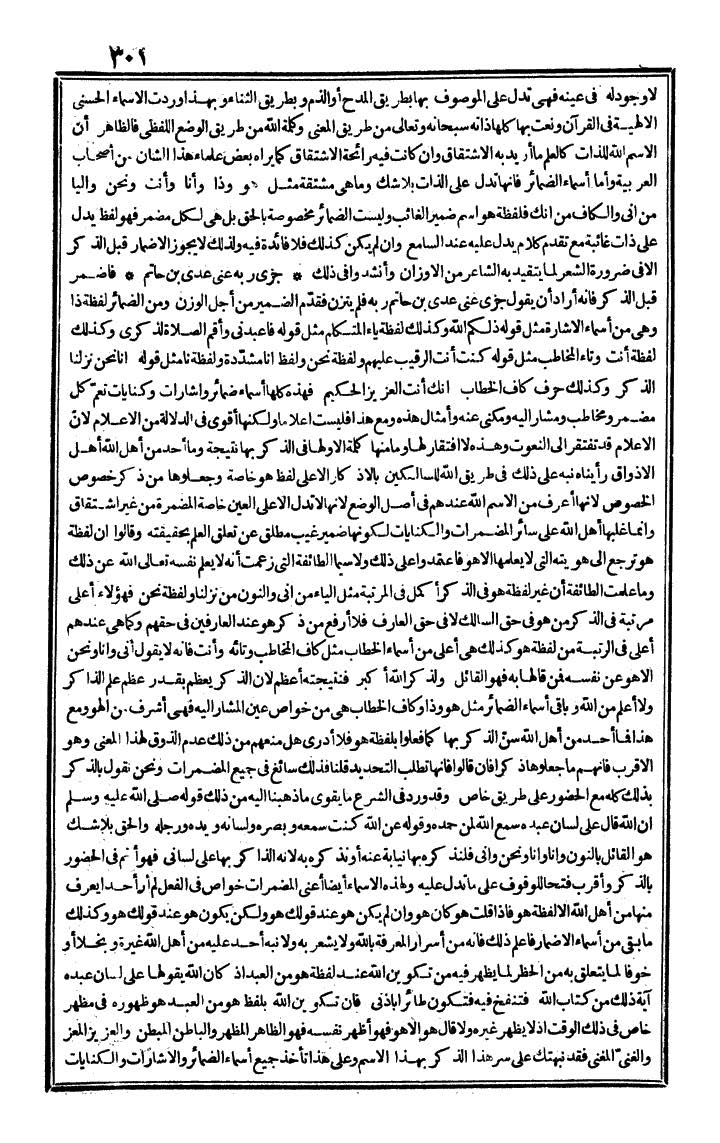 ٣٠١
لا وجود له فى عينه فهى تدل على الموصوف بها بطريق المدح أو الذم و بطريق الثناء و بهذا وردت الاسماء الحسنى
الالهية فى القرآن ونعت بها كلها ذاته سبحانه وتعالى من طريق المعنى وكلمة الله من طريق الوضع اللفظى فالظاهر أن
الاسم الله للذات كالعلم ما أريد به الاشتقاق وان كانت فيه رائحة الاشتقاق كما يراه بعض علماء هذا الشان من أصحاب
العربية وأما أسماء الضمائر فانها تدل على الذات بلا شك وما هى مشتقة مثل هو وذا وأنا وأنت ونحن واليا
من انى والكاف من انك فلفظة هو اسم ضمير الغائب وليست الضمائر مخصوصة بالحق بل هى لكل مضمر فهو لفظ يدل
على ذات غائبة مع تقدم كلام يدل عليه عند السامع وان لم يكن كذلك فلا فائدة فيه ولذلك لا يجوز الاضمار قبل الذكر
الا فى ضرورة الشعر لما يتقيد به الشاعر من الاوزان وأنشدوا فى ذلك * جزى ربه عنى عدى بن حاتم * فاضمر
قبل الذكر فانه أراد أن يقول جزى عنى عدى بن حاتم ربه فلم يتزن فقدّم الضمير من أجل الوزن ومن الضمائر لفظة ذا
وهى من أسماء الاشارة مثل قوله ذلكم الله وكذلك لفظة ياء المتكلم مثل قوله فاعبدنى وأقم الصلاة لذكرى وكذلك
لفظة أنت وتاء المخاطب مثل قوله كنت أنت الرقيب عليهم ولفظة نحن ولفظ انا مشدّدة ولفظة نا مثل قوله انا نحن نزلنا
الذكر وكذلك حرف كاف الخطاب انك أنت العزيز الحكيم فهذه كلها أسماء ضمائر واشارات وكنايات تعمّ كل
مضمر ومخاطب ومشار اليه ومكنى عنه وأمثال هذه ومع هذا فليست اعلاما ولكنها أقوى فى الدلالة من الاعلام لانّ
الاعلام قد تفتقر الى النعوت وهذه لا افتقار لها وما منها كلمة الا ولها فى الذكر بها نتيجة وما أحد من أهل الله أهل
الاذواق رأيناه نبه على ذلك فى طريق الله للسالكين بالاذكار الا على لفظ هو خاصة وجعلوها من ذكر خصوص
الخصوص لانها أعرف من الاسم الله عندهم فى أصل الوضع لانها لا تدل الا على العين خاصة المضمرة من غير اشتقاق
وانما غلبها أهل الله على سائر المضمرات والكنايات لكونها ضمير غيب مطلق عن تعلق العلم بحقيقته وقالوا ان لفظة
هو ترجع الى هويته التى لا يعلمها الا هو فاعتمدوا على ذلك ولا سيما الطائفة التى زعمت أنه لا يعلم نفسه تعالى الله عن ذلك
وما علمت الطائفة أن غير لفظة هو فى الذكر أكمل فى المرتبة مثل الياء من انى والنون من نزلنا ولفظة نحن فهؤلاء أعلى
مرتبة فى الذكر من هو فى حق السالك لا فى حق العارف فلا أرفع من ذكر هو عند العارفين فى حقهم وكما هى عندهم
أعلى فى الرتبة من لفظة هو كذلك هى أعلى من أسماء الخطاب مثل كاف المخاطب وتائه وأنت فانه لا يقول أنى وانا ونحن
الا هو عن نفسه فمن قالها به فهو القائل ولذكر الله أكبر فنتيجته أعظم لان الذكر يعظم بقدر عظم علم الذاكر
ولا أعلم من الله و باقى أسماء الضمائر مثل هو وذا وكاف الخطاب هى من خواص عين المشار اليه فهى أشرف من الهو ومع
هذا فما أحد من أهل الله سنّ الذكر بها كما فعلوا بلفظة هو فلا أدرى هل منعهم من ذلك عدم الذوق لهذا المعنى وهو
الاقرب فانهم ما جعلوها ذكرا فان قالوا فانها تطلب التحديد قلنا فذلك سائغ فى جميع المضمرات ونحن نقول بالذكر
بذلك كله مع الحضور على طريق خاص وقد ورد فى الشرع ما يقوى ما ذهبنا اليه من ذلك قوله صلى الله عليه وسلم
ان الله قال على لسان عبده سمع الله لمن حمده وقوله عن الله كنت سمعه و بصره ولسانه ويده ورجله والحق بلا شك
هو القائل بالنون وانا وانا ونحن وانى فلنذكره بها نيابة عنه أو نذكره به لانه الذاكر بها على لسانى فهو أتم فى الحضور
بالذكر وأقرب فتحا للوقوف على ما تدل عليه ولهذه الاسماء أيضا أعنى المضمرات خواص فى الفعل لم أر أحدا يعرف
منها من أهل الله الا لفظة هو فاذا قلت هو كان هو وان لم يكن هو عند قولك هو ولكن يكون هو عند قولك هو وكذلك
ما بقى من أسماء الاضمار فاعلم ذلك فانه من أسرار المعرفة بالله ولا يشعر به ولا نبه أحد عليه من أهل الله غيرة و بخلا أو
خوفا لما يتعلق به من الخطر لما يظهر فيه من تكوين الله عند لفظة هو من العبد اذ كان الله يقولها على لسان عبده
آية ذلك من كتاب الله فتنفخ فيه فتكون طائرا باذنى فان تكوين الله بلفظ هو من العبد هو ظهوره فى مظهر
خاص فى ذلك الوقت اذ لا يظهر غيره ولا قال هو الا هو فهو أظهر نفسه فهو الظاهر المظهر والباطن المبطن والعزيز المعز
والغنىّ المغنى فقد نبهتك على سر هذا الذكر بهذا الاسم وعلى هذا تأخذ جميع أسماء الضمائر والاشارات والكنايات